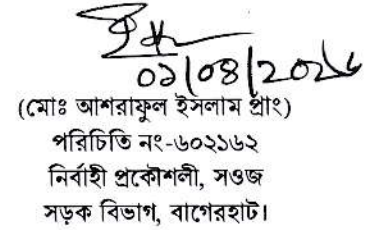 ০১/০৪/২০২৬
(মোঃ আশরাফুল ইসলাম প্রাং)
পরিচিতি নং-৬০২১৬২
নির্বাহী প্রকৌশলী, সওজ
সড়ক বিভাগ, বাগেরহাট।